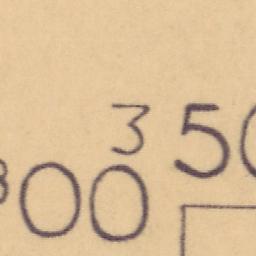 3 50
800